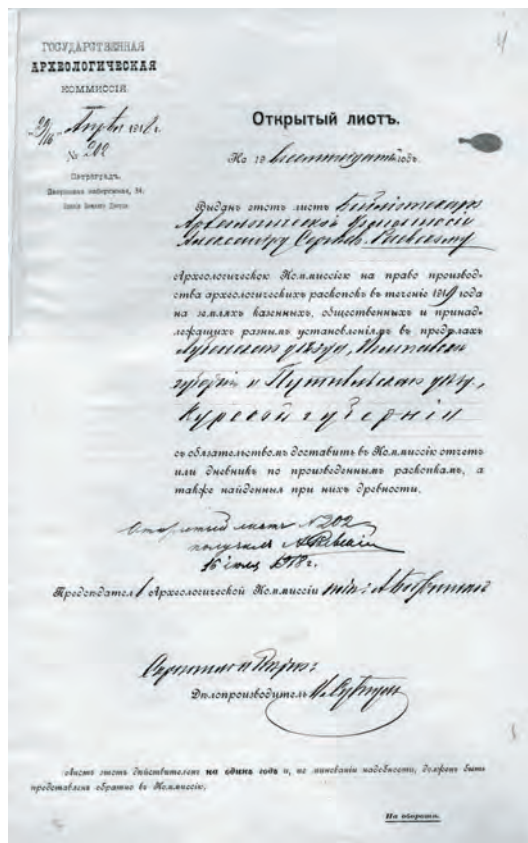 4
ГОСУДАРСТВЕННАЯ
АРХЕОЛОГИЧЕСКАЯ
КОММИССІЯ
1918 г.
№ 202
Петроградъ.
Дворцовая набережная, 34.
Зданіе Зимняго Дворца.
Открытый листъ.
На 19 годъ.
Выданъ этотъ листъ Библіотекарю
Археологической Коммиссіи
Александру Сергѣев. Раевскому
Археологическою Коммиссіею на право производ-
ства археологическихъ раскопокъ въ теченіе 1918 года
на земляхъ казенныхъ, общественныхъ и принад-
лежащихъ разнымъ установленіямъ въ предѣлахъ
уѣзда,
губерніи и Путивльскаго уѣзд.,
Курской губерніи
съ обязательствомъ доставить въ Коммиссію отчетъ
или дневникъ по произведеннымъ раскопкамъ, а
также найденныя при нихъ древности.
Открытый листъ №202
получилъ
16 1918 г.
Предсѣдатель Археологической Коммиссіи
Дѣлопроизводитель
Листъ этотъ дѣйствителенъ на одинъ годъ и, по минованіи надобности, долженъ быть
представленъ обратно въ Коммиссію.
На оборотѣ.